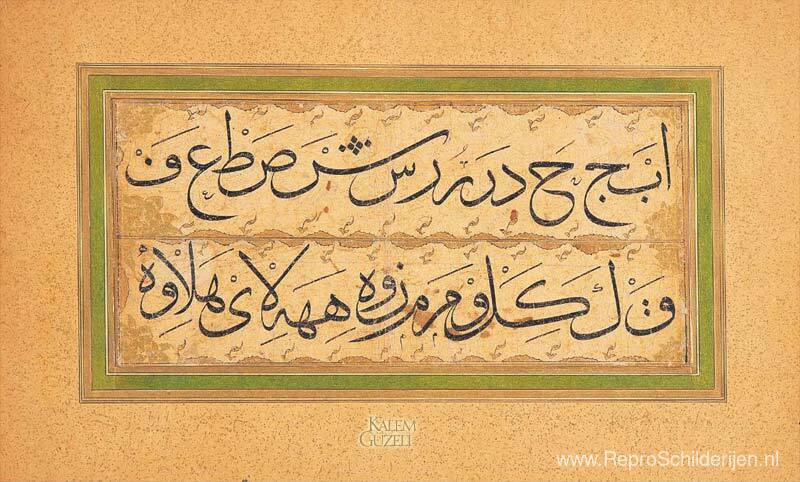 ا ب ج ح د ر ر ر س ش ر ص ط ع ف
ق ك كل و م ر م ر وه ههه لا ى
KALEM
GÜZELİ
www.ReproSchilderijen.nl